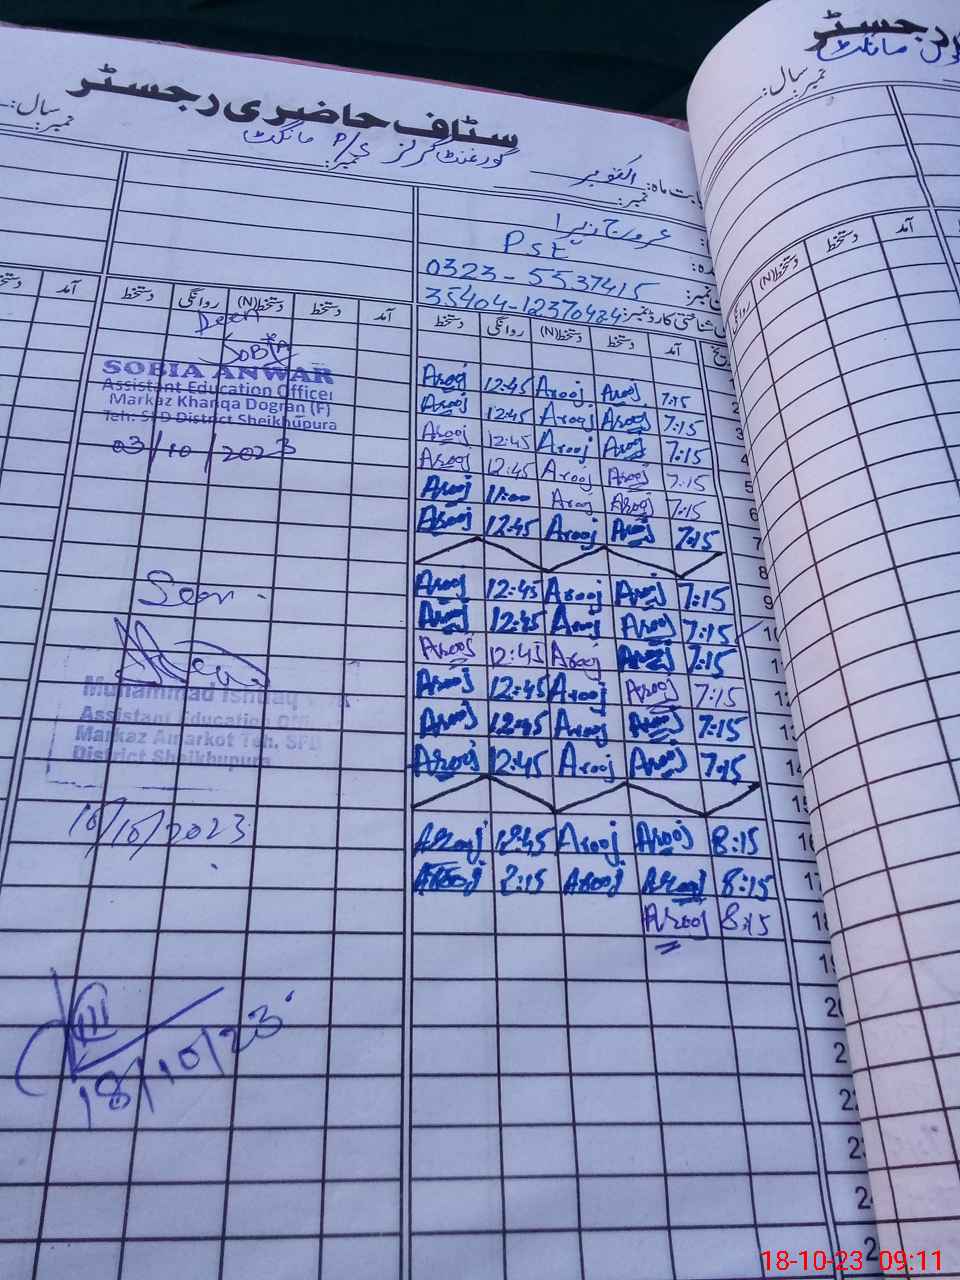 سٹاف حاضری رجسٹر
نمبر سال:
گورنمنٹ گرلز P/S مانگٹ
نمبر:
بابت ماہ: اکتوبر
نمبر:
عروج زہرا
PST
0323-5537415
شناختی کارڈ نمبر: 35404-12370484
آمد دستخط دستخط(N) روانگی دستخط
7:15 Arooj Arooj 12:45 Arooj
7:15 Arooj Arooj 12:45 Arooj
7:15 Arooj Arooj 12:45 Arooj
7:15 Arooj Arooj 12:45 Arooj
7:15 Arooj Arooj 11:00 Arooj
7:15 Arooj Arooj 12:45 Arooj
7:15 Arooj Arooj 12:45 Arooj
7:15 Arooj Arooj 12:45 Arooj
7:15 Arooj Arooj 12:45 Arooj
7:15 Arooj Arooj 12:45 Arooj
7:15 Arooj Arooj 12:45 Arooj
7:15 Arooj Arooj 12:45 Arooj
8:15 Arooj Arooj 12:45 Arooj
8:15 Arooj Arooj 2:15 Arooj
8:15 Arooj
آمد دستخط دستخط(N) روانگی دستخط
Seen
SOBIA ANWAR
Assistant Education Officer
Markaz Khanqa Dogran (F)
Teh: SFD District Sheikhupura
03/10/2023
Seen
Muhammad Ishtiaq
Assistant Education
Markaz Amarkot Teh. SFD
District Sheikhupura
10/10/2023
18/10/23
آمد
دستخط
رجسٹر
نمبر سال:
آمد دستخط دستخط(N) روانگی
18-10-23 09:11